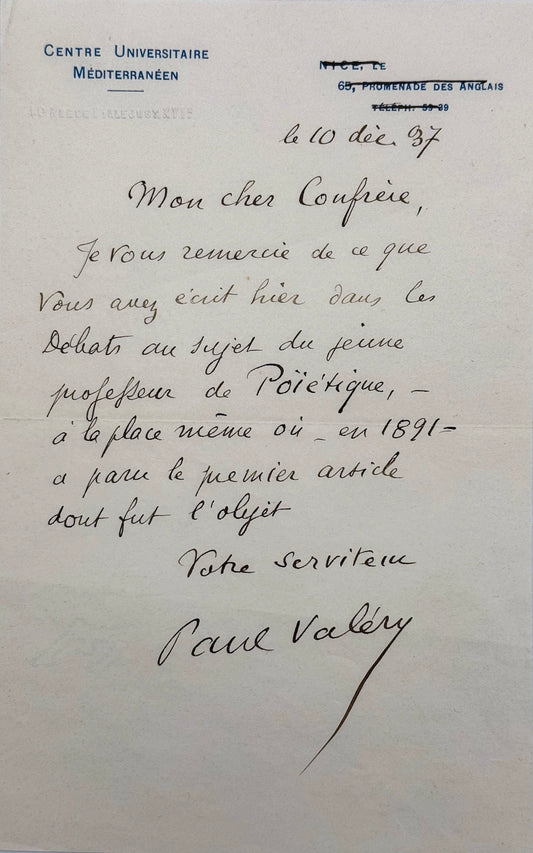 CENTRE UNIVERSITAIRE
MÉDITERRANÉEN
NICE, LE
65, PROMENADE DES ANGLAIS
TÉLÉPH. 53-39
le 10 déc. 37
Mon cher Confrère,
Je vous remercie de ce que
vous avez écrit hier dans les
Débats au sujet du jeune
professeur de Poïétique, —
à la place même où — en 1891 —
a paru le premier article
dont fut l'objet
Votre serviteur
Paul Valéry